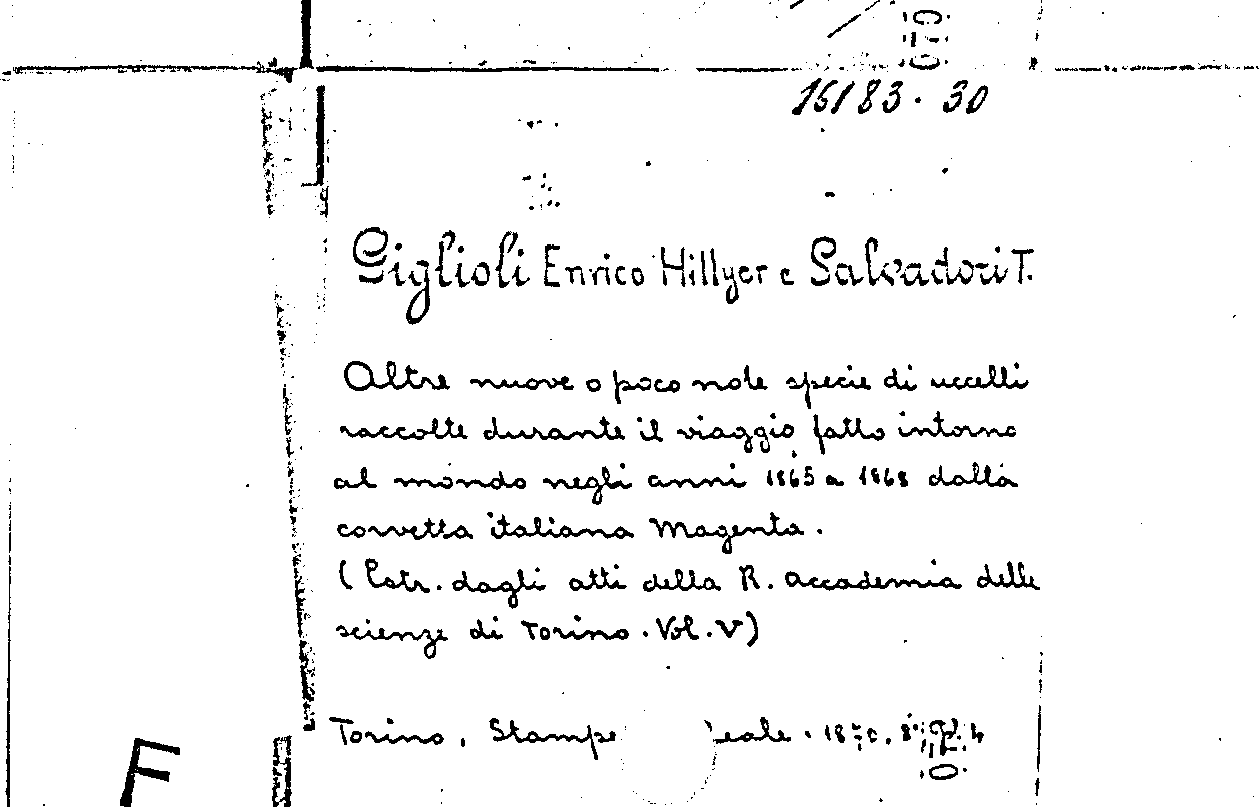 15183. 30
Giglioli Enrico Hillyer e Salvadori T.
Altre nuove o poco note specie di uccelli
raccolte durante il viaggio fatto intorno
al mondo negli anni 1865 a 1868 dalla
corvetta italiana Magenta.
(Estr. dagli atti della R. Accademia delle
scienze di Torino. Vol. V)
Torino, Stampe eale. 1870. 8°
F